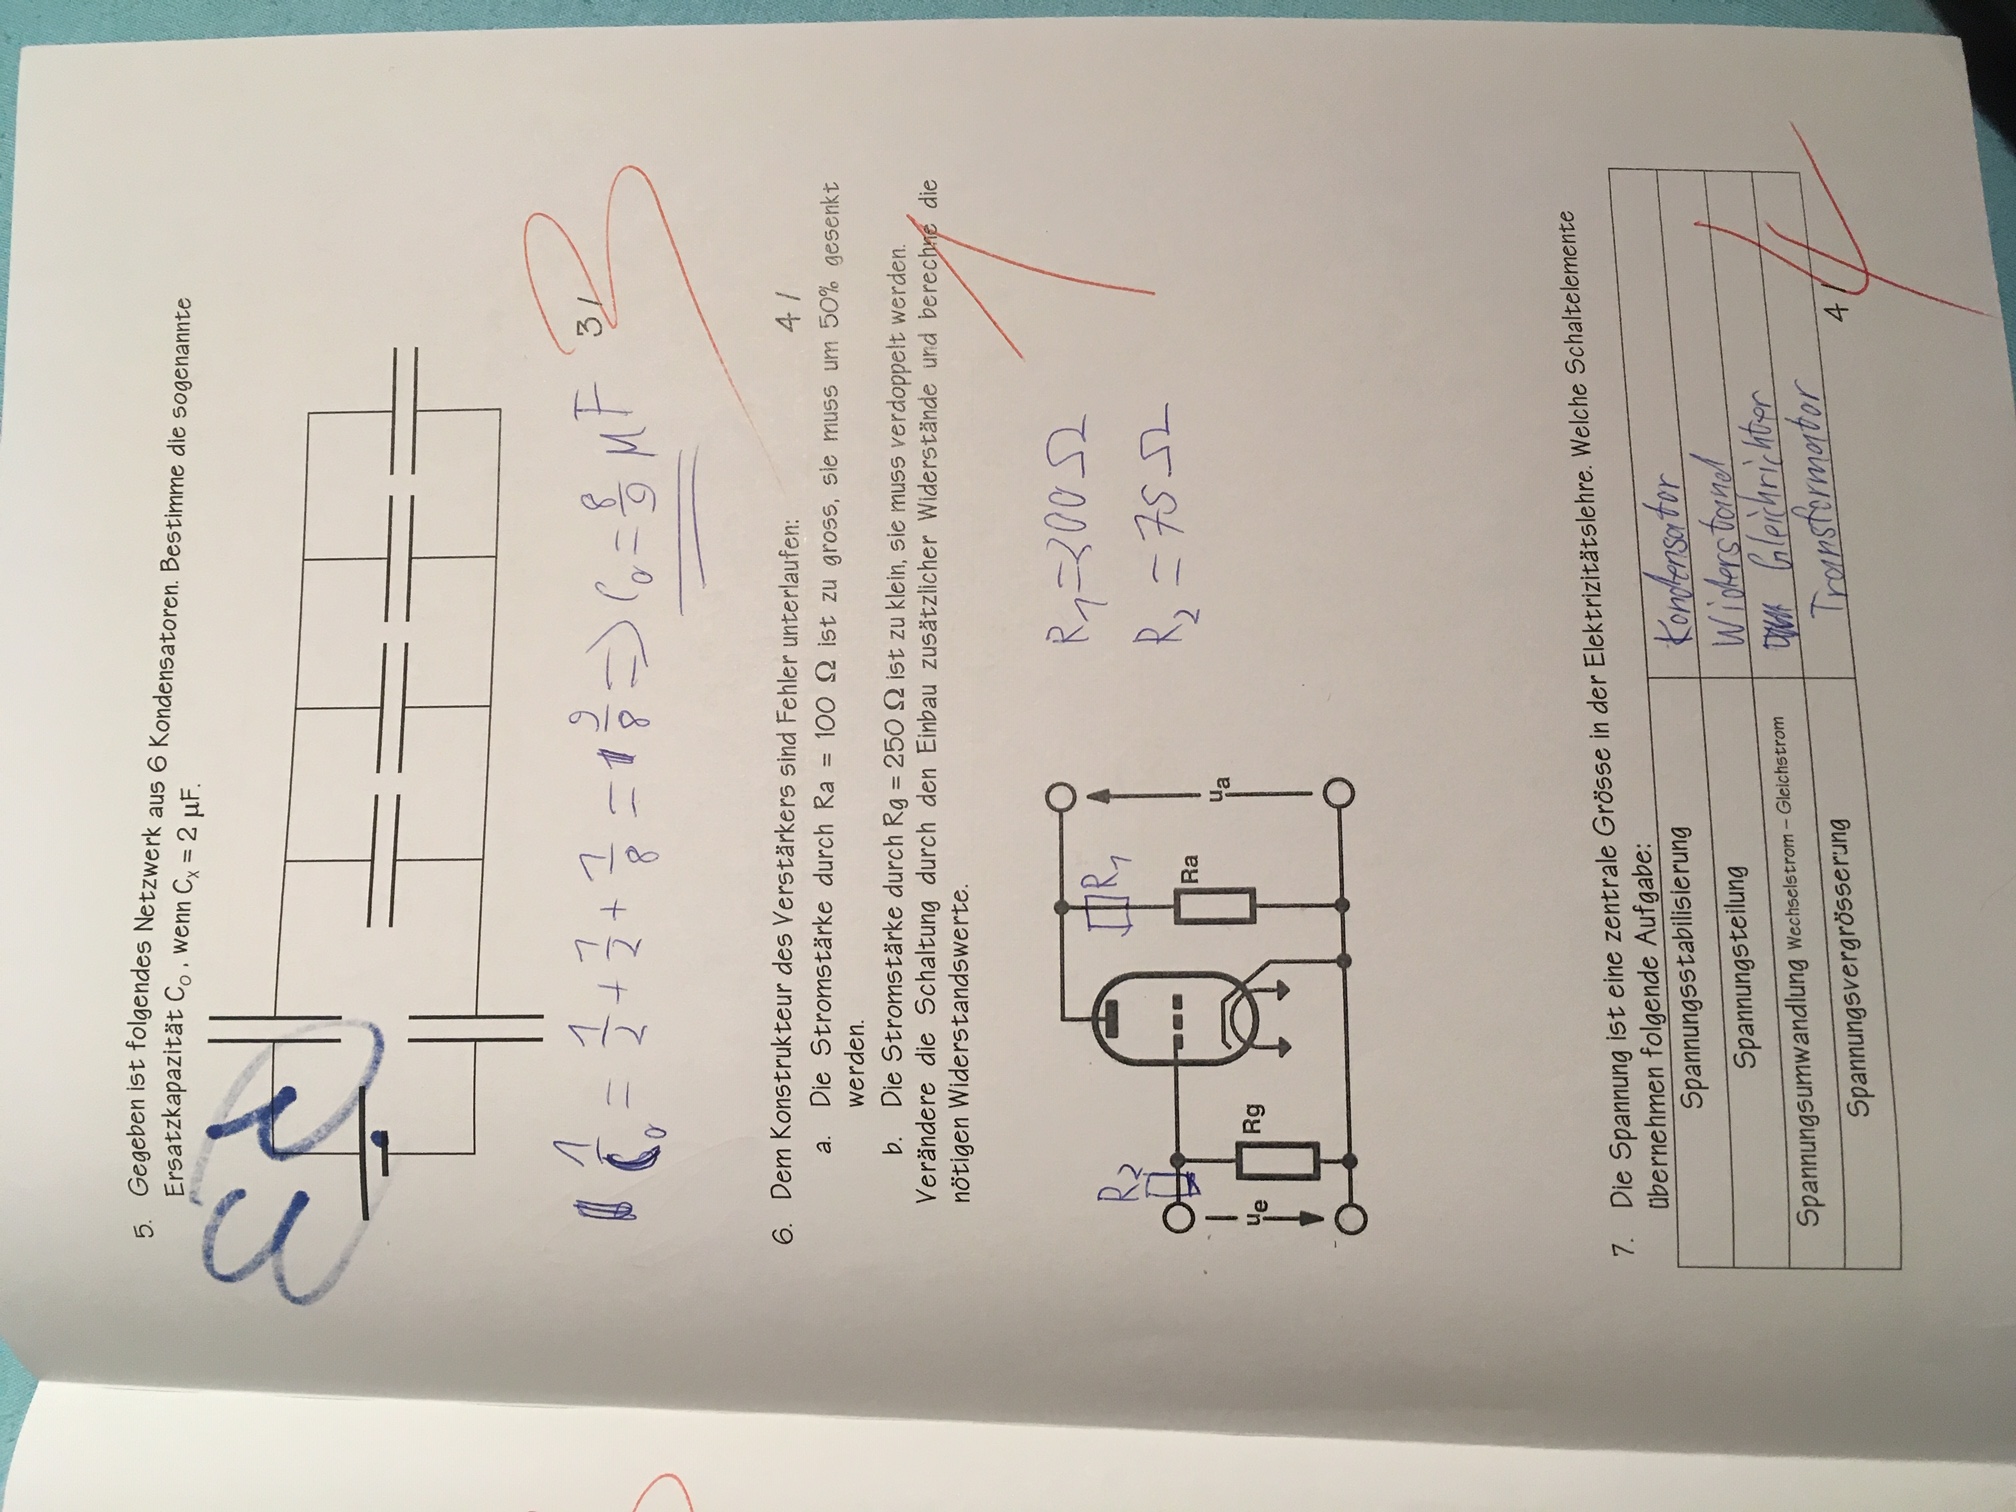 5. Gegeben ist folgendes Netzwerk aus 6 Kondensatoren. Bestimme die sogenannte
Ersatzkapazität C₀, wenn Cₓ = 2 µF.
1/C₀ = 1/2 + 1/2 + 1/8 = 9/8 ⇒ C₀ = 8/9 µF
3/
3
6. Dem Konstrukteur des Verstärkers sind Fehler unterlaufen:
4/
a. Die Stromstärke durch Ra = 100 Ω ist zu gross, sie muss um 50% gesenkt
werden.
b. Die Stromstärke durch Rg = 250 Ω ist zu klein, sie muss verdoppelt werden.
Verändere die Schaltung durch den Einbau zusätzlicher Widerstände und berechne die
nötigen Widerstandswerte.
1
R₁ = 200 Ω
R₂ = 75 Ω
R₂
R₁
Ra
ua
ue
Rg
7. Die Spannung ist eine zentrale Grösse in der Elektrizitätslehre. Welche Schaltelemente
übernehmen folgende Aufgabe:
Spannungsstabilisierung Kondensator
Spannungsteilung Widerstand
Spannungsumwandlung Wechselstrom – Gleichstrom Gleichrichter
Spannungsvergrösserung Transformator
4/
4